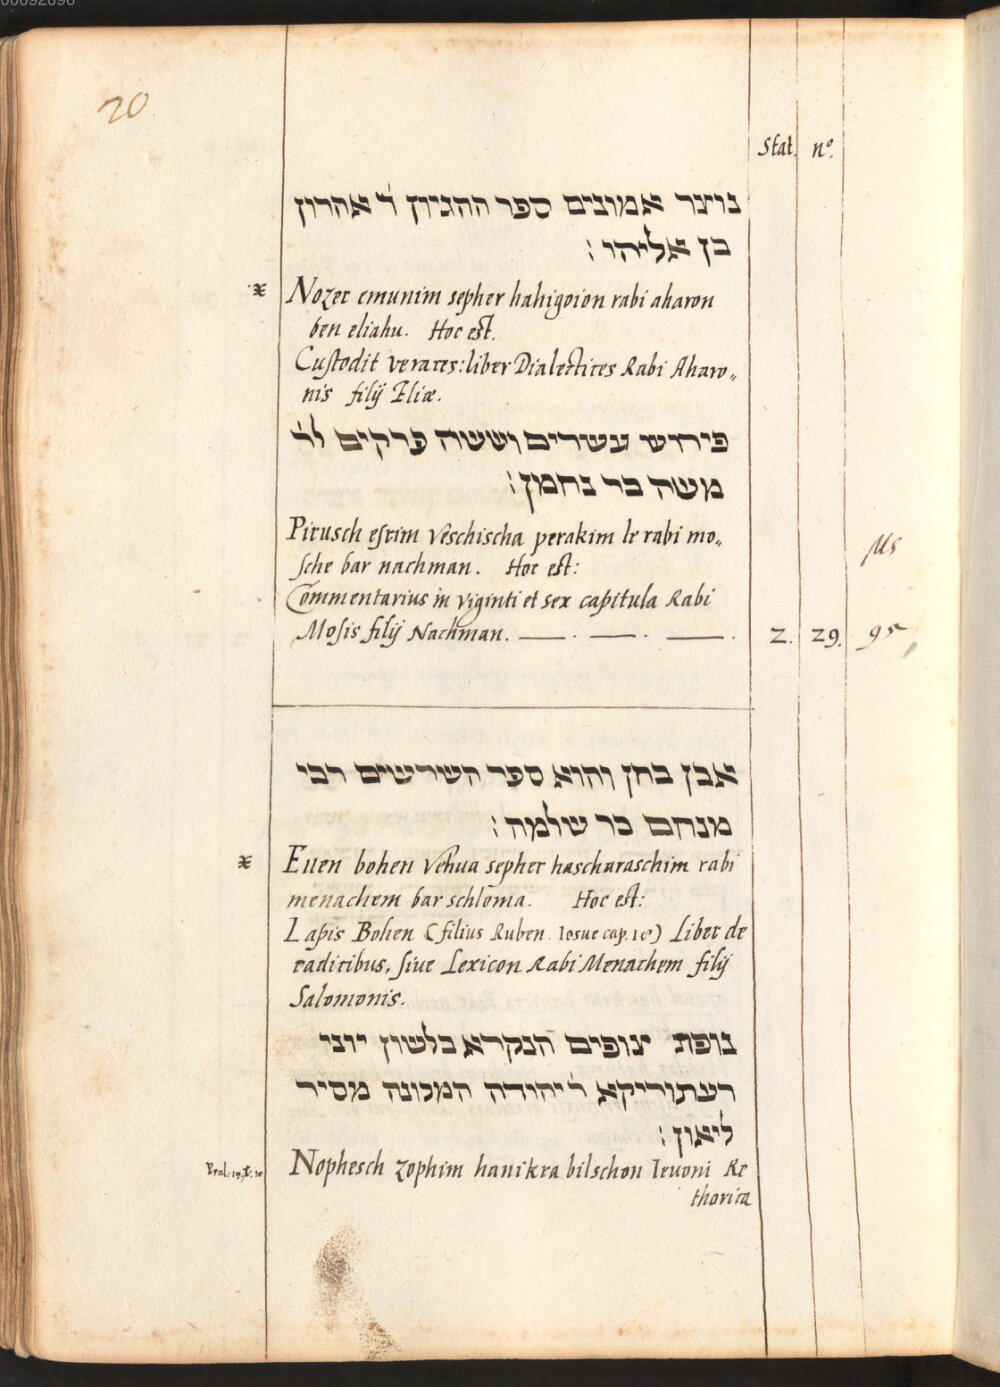 00092096
20
Stat. nº.
נוצר אמונים ספר ההגיון ר' אהרון
בן אליהו :
* Nozer emunim sepher hahigoion rabi aharon
ben eliahu. Hoc est.
Custodit veraces: liber Dialectices Rabi Aharo„
nis filij Eliæ.
פירוש עשרים וששה פרקים לר'
משה בר נחמן :
Pirusch esrim veschischa perakim le rabi mo„
sche bar nachman. Hoc est:
Ms
Commentarius in viginti et sex capitula Rabi
Mosis filij Nachman. —. —. —. 2. 29. 95
אבן בחן והוא ספר השרשים רבי
מנחם בר שלמה :
* Euen bohen vehua sepher hascharaschim rabi
menachem bar schloma. Hoc est:
Lapis Bohen (filius Ruben. Iosue cap. ) Liber de
radicibus, siue Lexicon Rabi Menachem filij
Salomonis.
נופת צופים הנקרא בלשון יוני
רעתוריקא ר' יהודה המכונה מסיר
ליאון :
Psal: 19, V. 10 Nophesch zophim hanikra bilschon Ieuoni Re
thorica